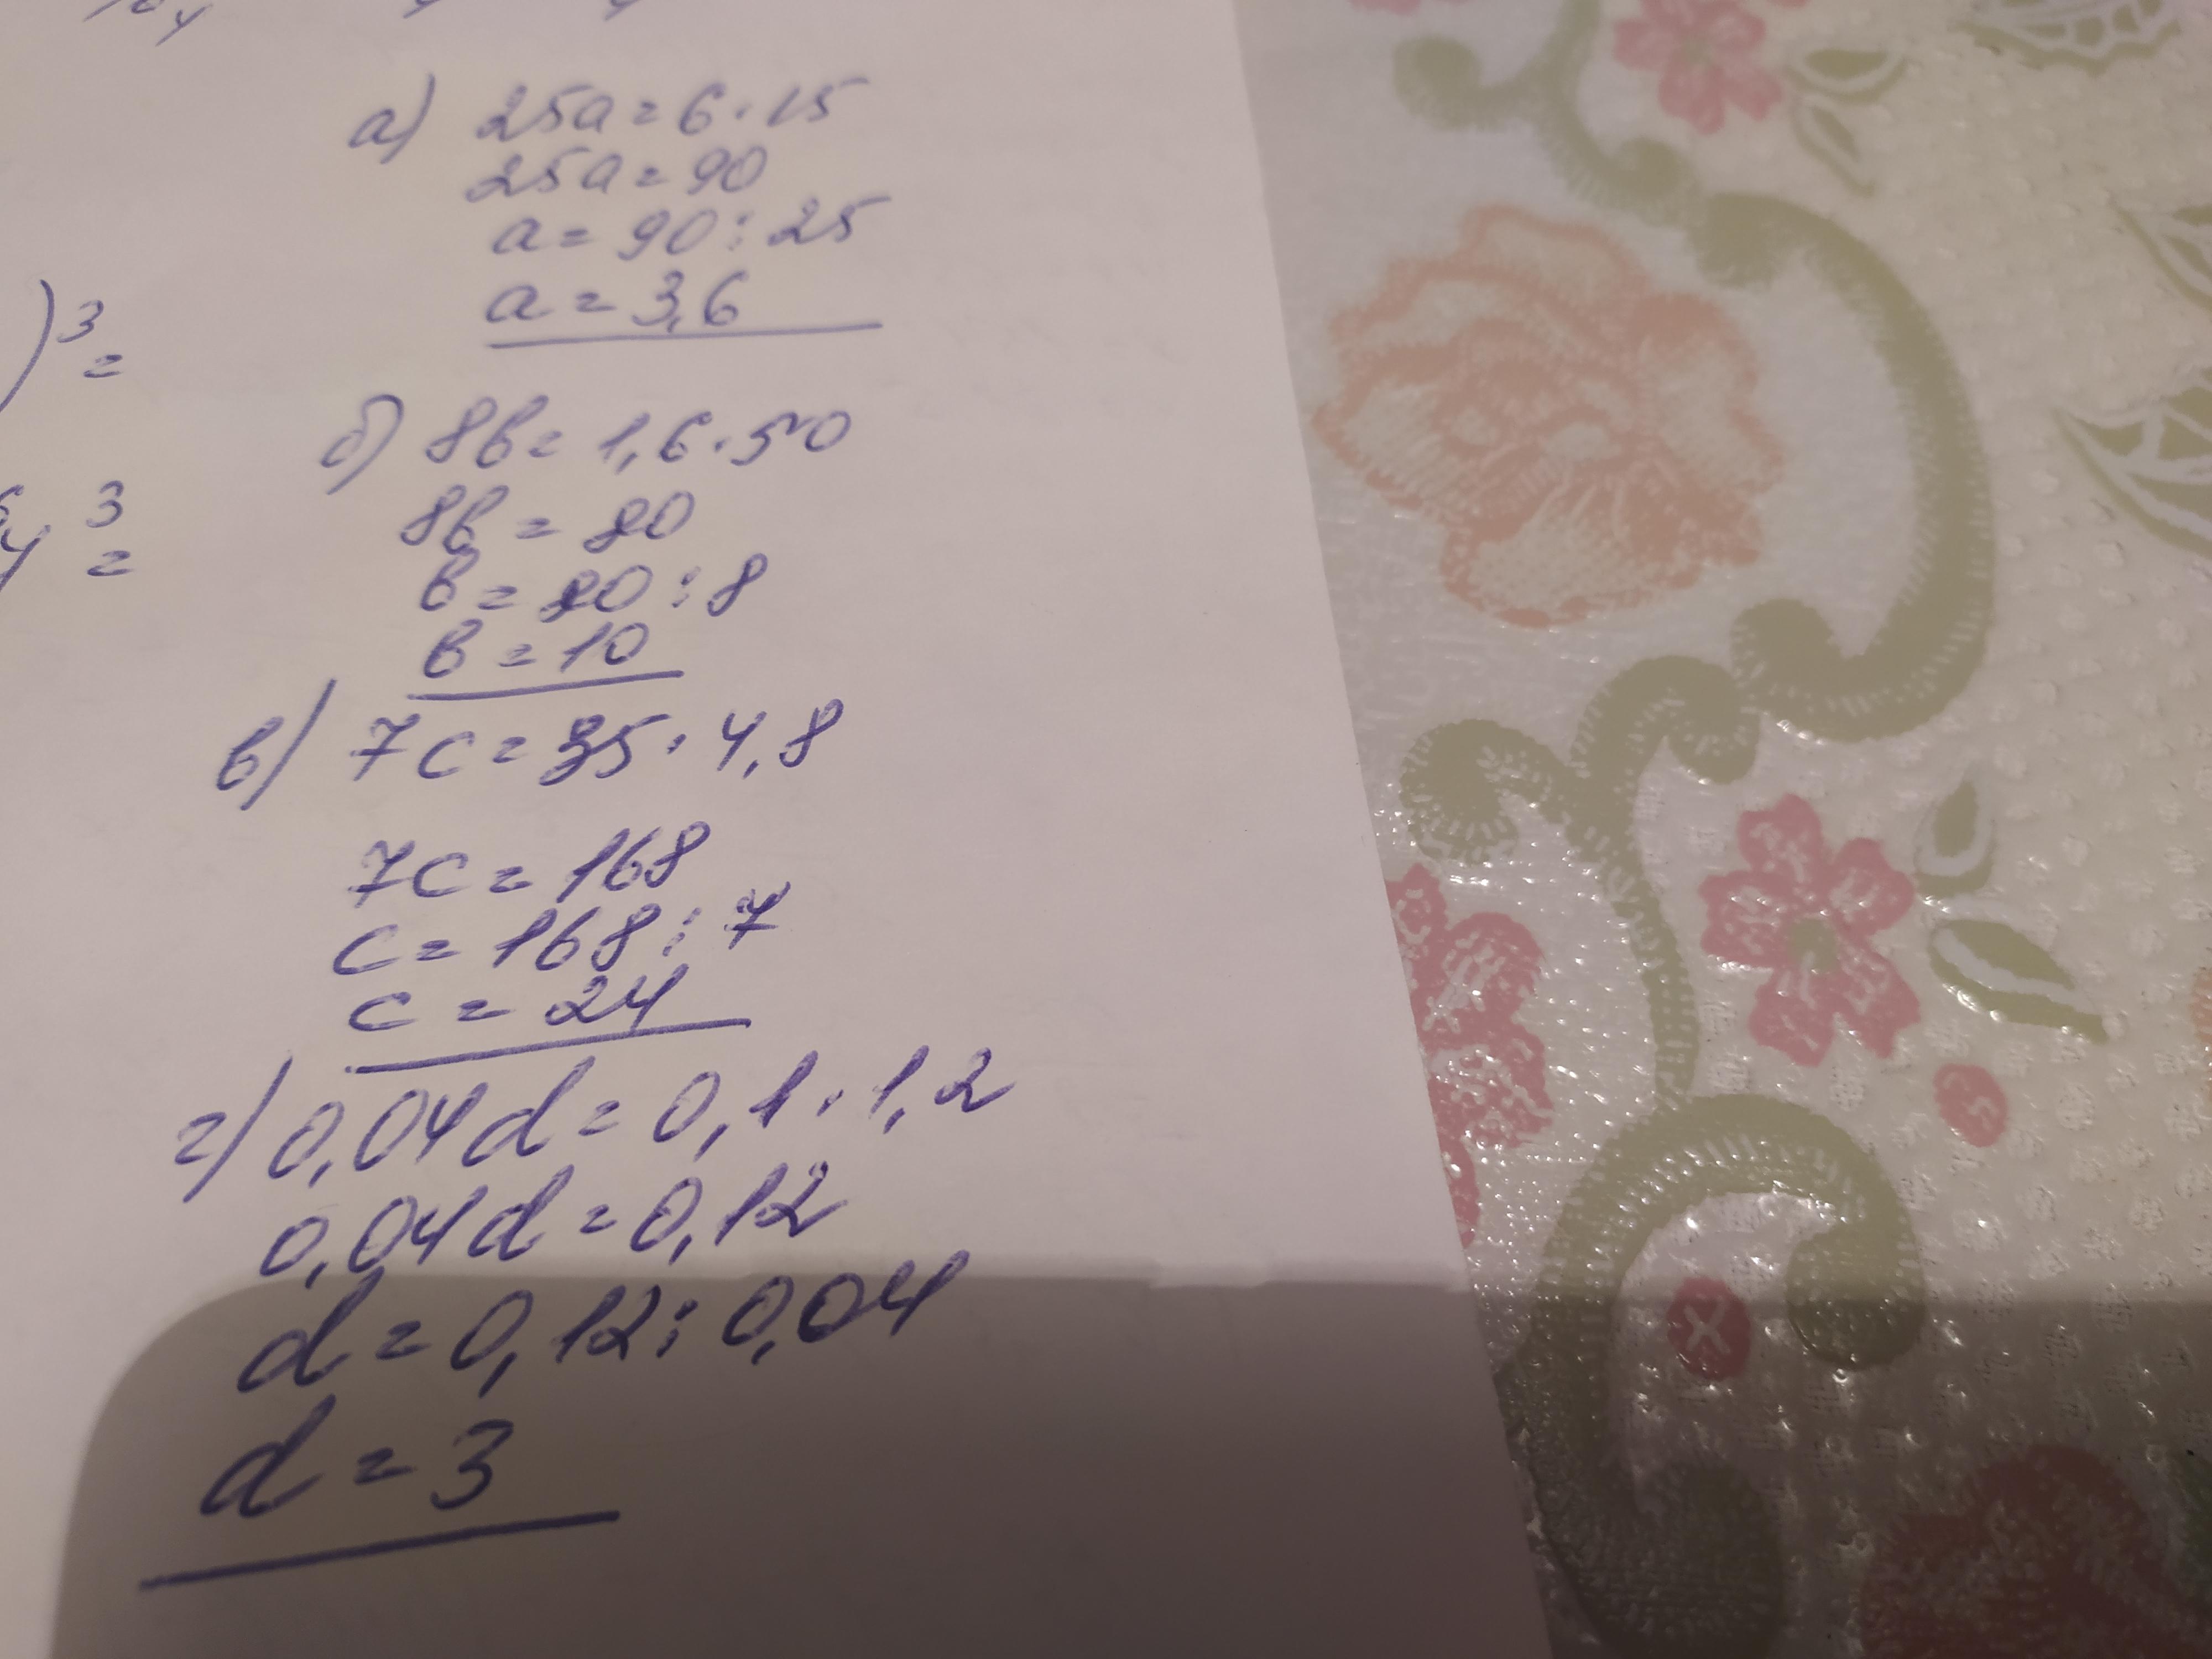 а) 25a = 6 · 15
25a = 90
a = 90 : 25
a = 3,6
)³ =
б) 8b = 1,6 · 50
8b = 80
³ =
b = 80 : 8
b = 10
в) 7c = 35 · 4,8
7c = 168
c = 168 : 7
c = 24
г) 0,04d = 0,1 · 1,2
0,04d = 0,12
d = 0,12 : 0,04
d = 3